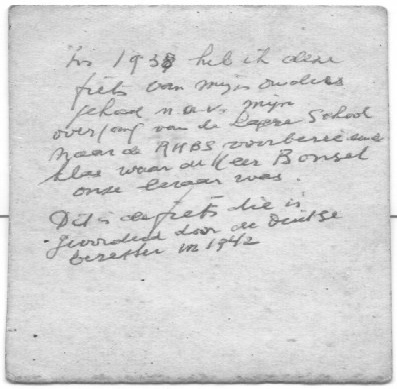 In 1938 heb ik deze
fiets van mijn ouders
gehad n.a.v. mijn
overgang van de Lagere School
naar de RHBS voorbereidende
klas waar de Heer Bonset
onze leraar was.
Dit is de fiets die is
gevorderd door de Duitse
bezetter in 1942